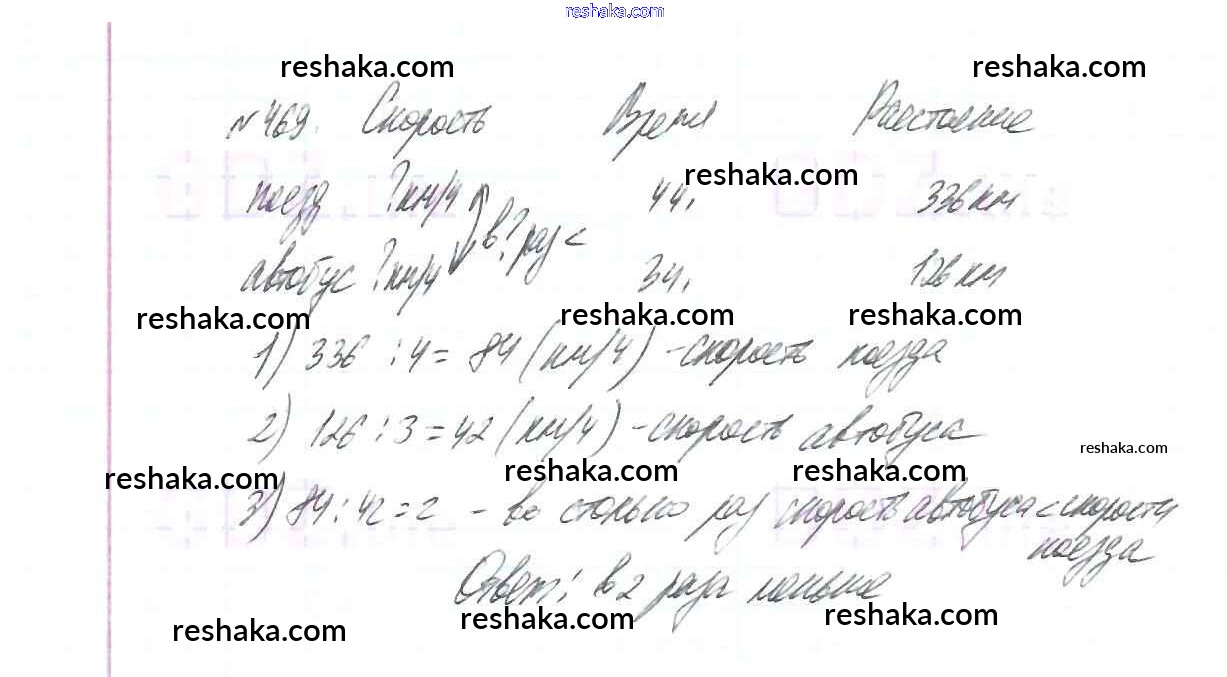 reshaka.com
reshaka.com reshaka.com
№469. Скорость Время Расстояние
reshaka.com
поезд ?км/ч 4ч. 336км
в ? раз <
автобус ?км/ч 3ч. 126км
reshaka.com reshaka.com reshaka.com
1) 336 : 4 = 84 (км/ч) - скорость поезда
2) 126 : 3 = 42 (км/ч) - скорость автобуса
reshaka.com
reshaka.com reshaka.com reshaka.com
3) 84 : 42 = 2 - во столько раз скорость автобуса < скорости
поезда
Ответ: в 2 раза меньше
reshaka.com reshaka.com reshaka.com